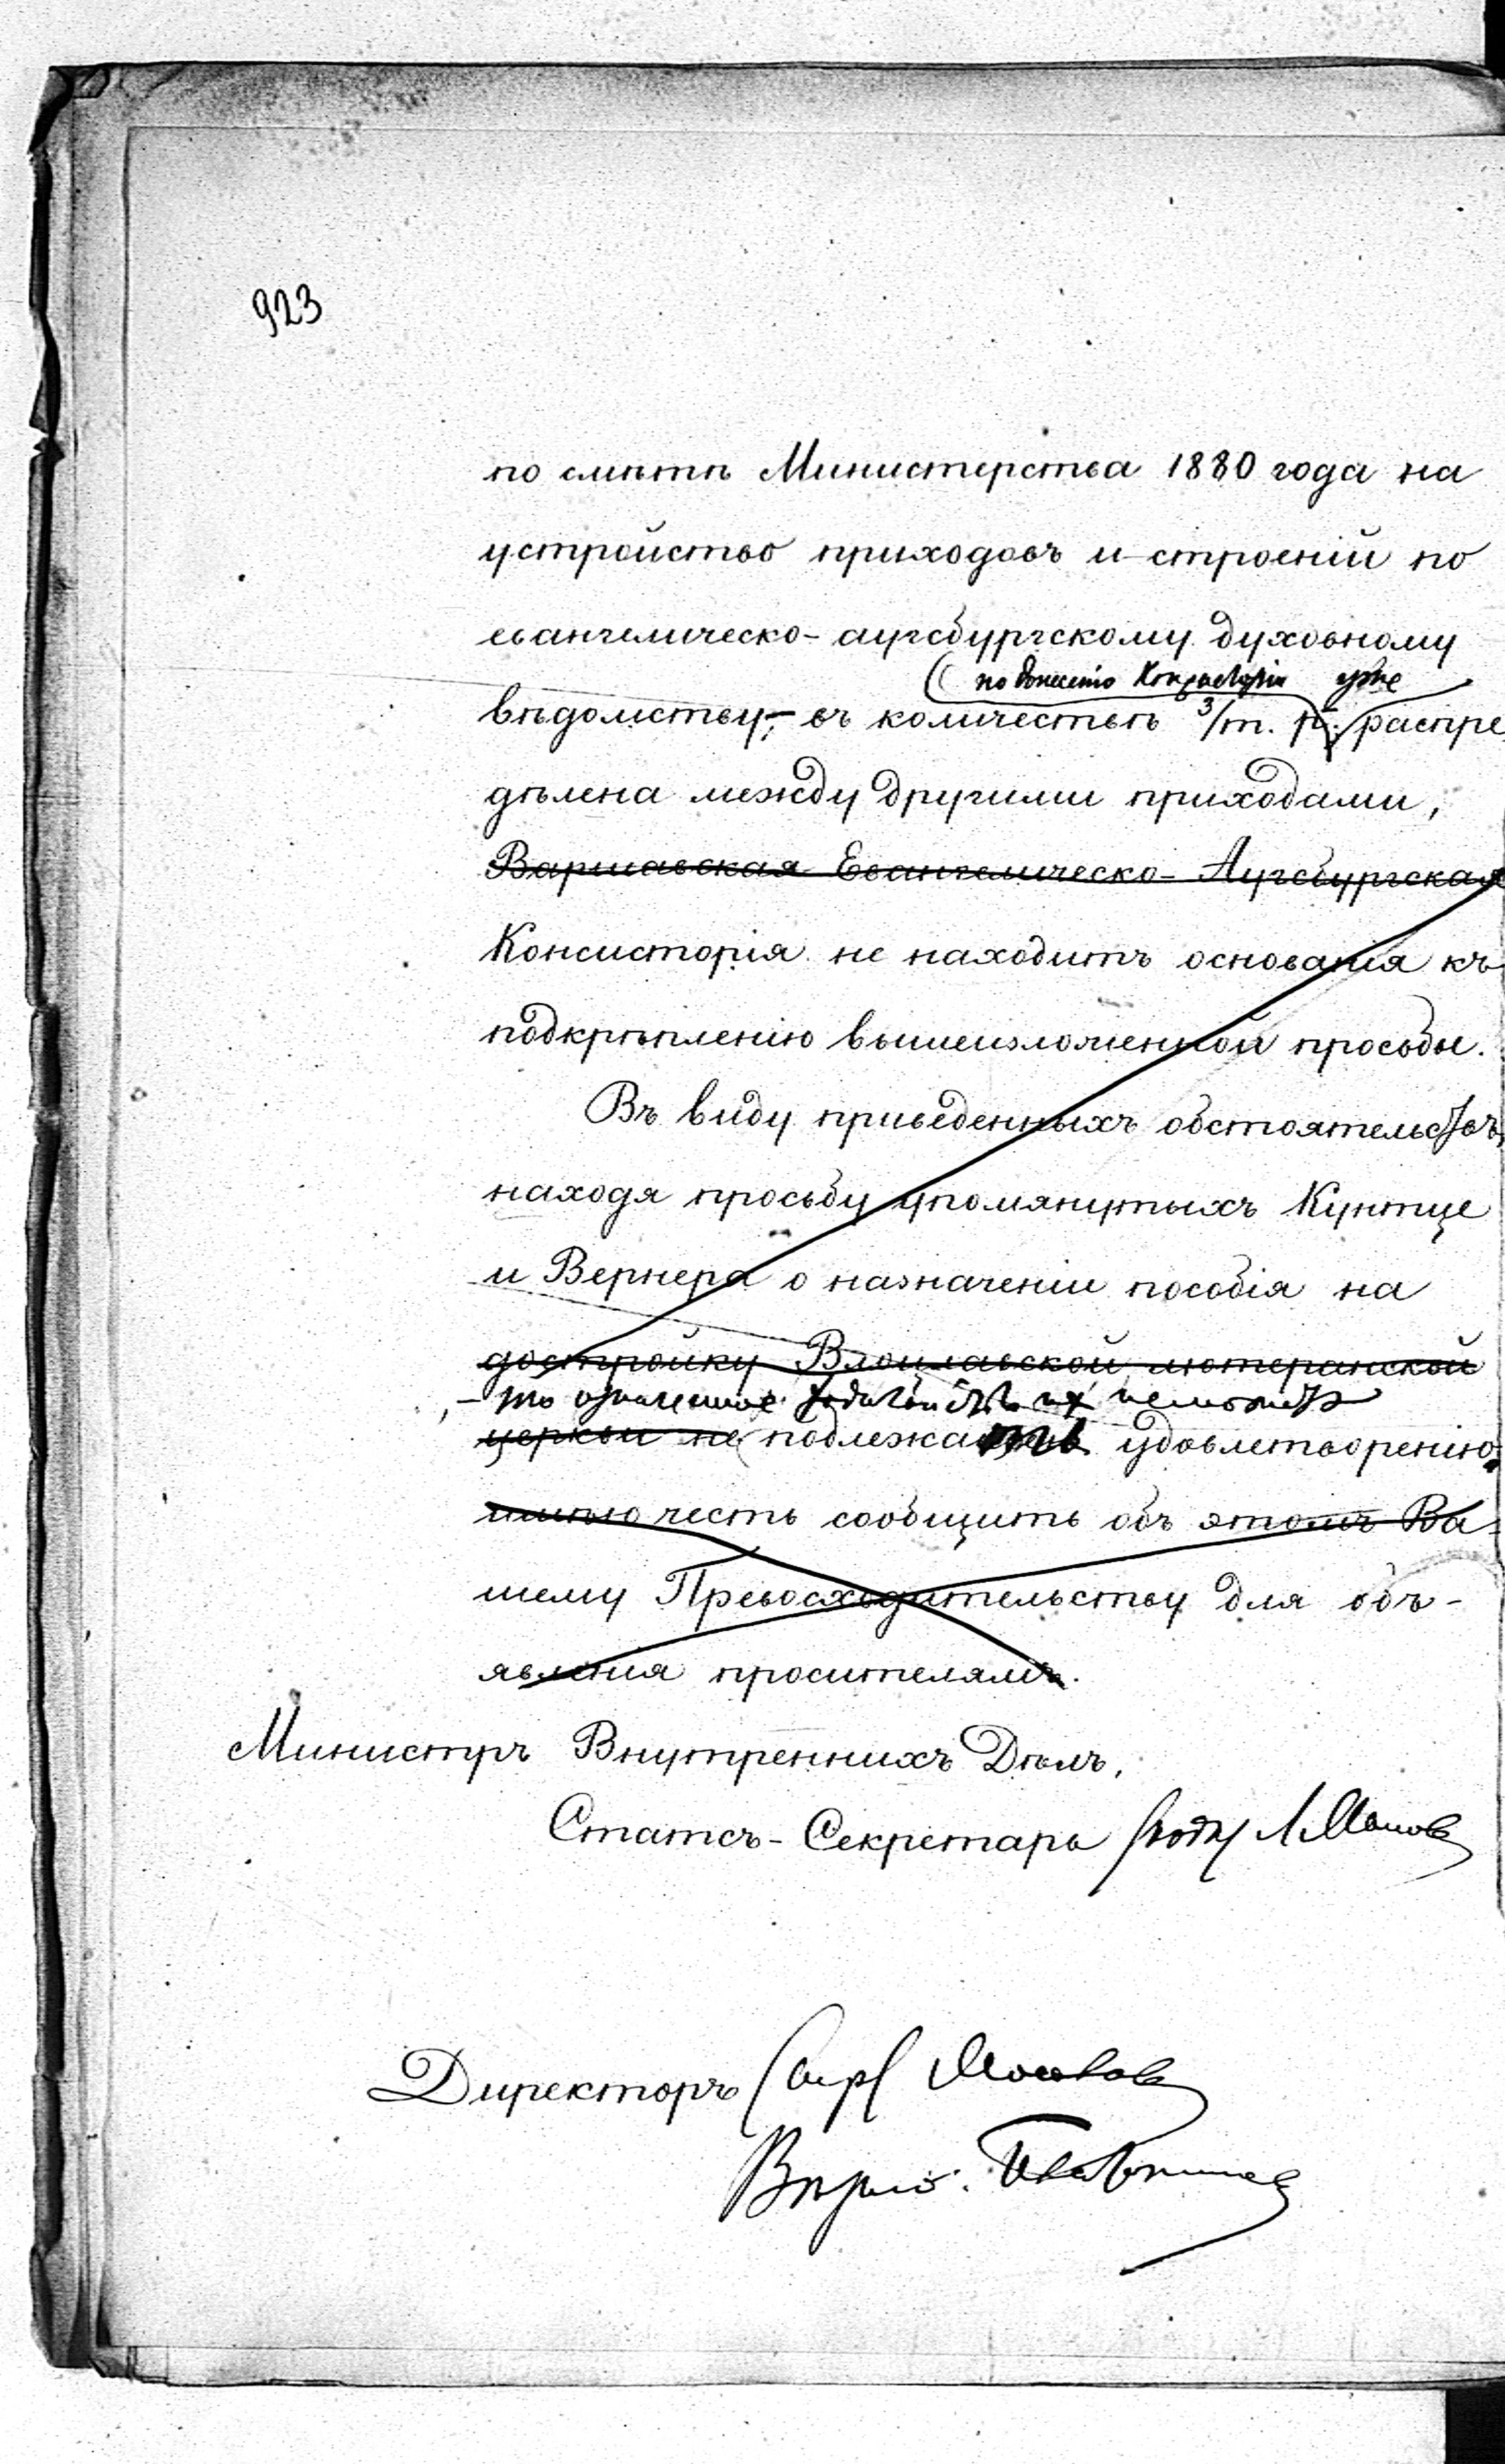 923
по смѣтѣ Министерства 1880 года на
устройство приходовъ и строеній по
евангелическо-аугсбургскому духовному
(по донесенію Консисторіи уже
вѣдомству, въ количествѣ 3/т. р. распре
дѣлена между другими приходами,
Варшавская Евангелическо-Аугсбургская
Консисторія не находитъ основанія къ
подкрѣпленію вышеизложенной просьбы.
Въ виду приведенныхъ обстоятельствъ,
находя просьбу упомянутыхъ Кунтце
и Вернера о назначеніи пособія на
достройку Влоцлавской лютеранской
, - то означенное ходатайство их не можетъ
церкви не подлежа удовлетворенію.
имѣю честь сообщить объ этомъ Ва-
шему Превосходительству для объ-
явленія просителямъ.
Министръ Внутреннихъ Дѣлъ,
Статсъ-Секретарь (подп Л Маков
Директоръ (скр Мосолов
Вѣрно: